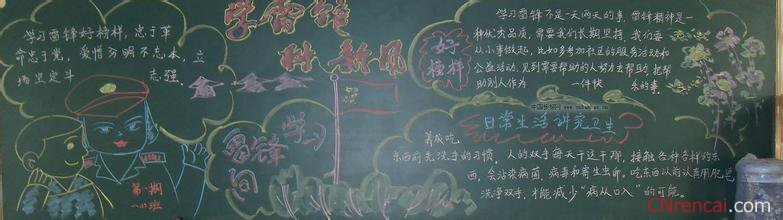 学雷锋
树新风
学习雷锋好榜样，忠于革
命忠于党，爱憎分明不忘本，立
场坚定斗 志强
第一期
班
向雷锋学习
好榜样
学习雷锋不是一天两天的事，雷锋精神是一
种优秀品质，需要我们长期坚持，我们要
从小事做起，比如多参加社区的服务活动和
公益活动，见到需要帮助的人努力去帮助，把帮
助别人作为 一件快 乐的事。
日常生活讲究卫生
养成吃
东西前先洗手的习惯，人的双手每天干这干那，接触各种各样的东
西，会沾染病菌，病毒和寄生虫卵，吃东西以前认真用肥皂
洗净双手，才能减少“病从口入”的可能。
CNrencai.com